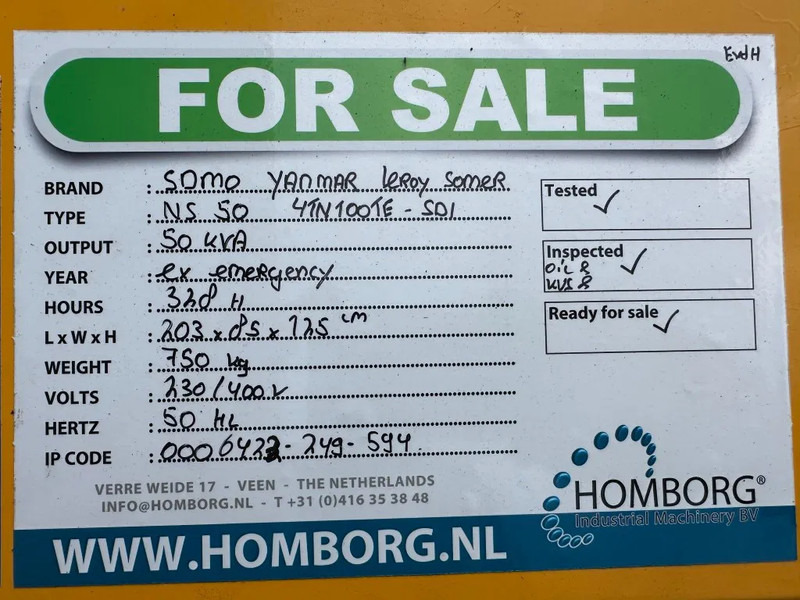 EvdH
FOR SALE
BRAND : SDMO YANMAR leroy somer
TYPE : NS 50 4TN100TE - SDI
OUTPUT : 50 KVA
YEAR : ex emergency
HOURS : 328 H
L x W x H : 203 x 85 x 125 cm
WEIGHT : 750 kg
VOLTS : 230/400 V
HERTZ : 50 Hz
IP CODE : 0006422 - 249 - 594
Tested ✓
Inspected ✓
Ready for sale ✓
VERRE WEIDE 17 - VEEN - THE NETHERLANDS
INFO@HOMBORG.NL - T +31 (0)416 35 38 48
HOMBORG®
Industrial Machinery BV
WWW.HOMBORG.NL